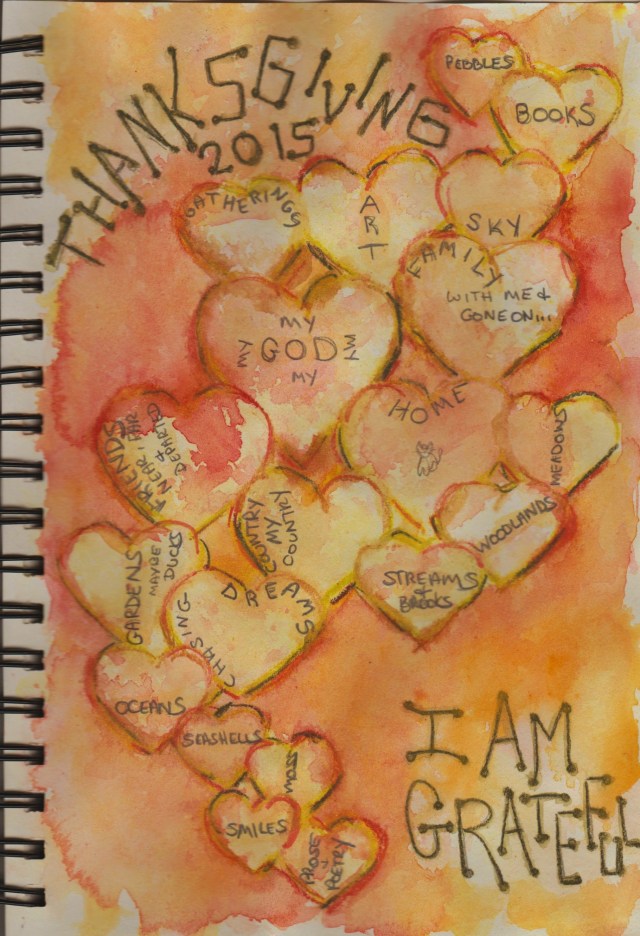 THANKSGIVING
2015
PEBBLES
BOOKS
GATHERINGS
ART
SKY
FAMILY
WITH ME &
GONE ON...
MY
MY GOD MY
MY
HOME
FRIENDS
NEAR FAR
&
DEPARTED
MEADOWS
COUNTRY
MY
COUNTRY
WOODLANDS
GARDENS
MAYBE
DUCKS
STREAMS
&
BROOKS
CHASING
DREAMS
OCEANS
SEASHELLS
MOSS
SMILES
PROSE
POETRY
I AM
GRATEFUL